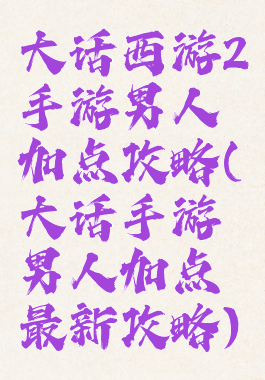 大话西游2
手游男人
加点攻略(
大话手游
男人加点
最新攻略)